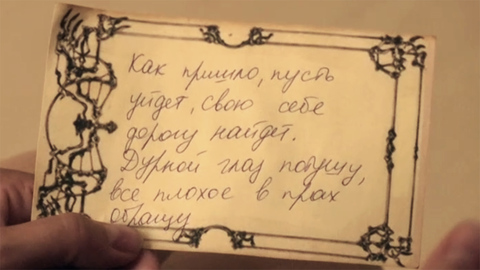 Как пришло, пусть
уйдет, свою себе
дорогу найдет.
Дурной глаз потушу,
все плохое в прах
обращу